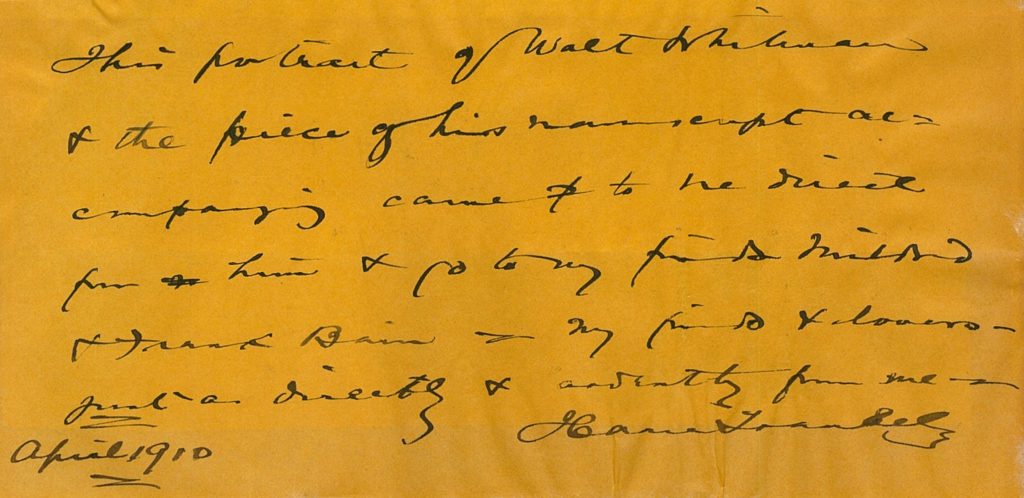 This portrait of Walt Whitman
& the piece of his manuscript ac=
companying came to me direct
from him & go to my friends Mildred
& Frank Bain — my friends & lovers —
just as directly & ardently from me —
Horace Traubel
April 1910